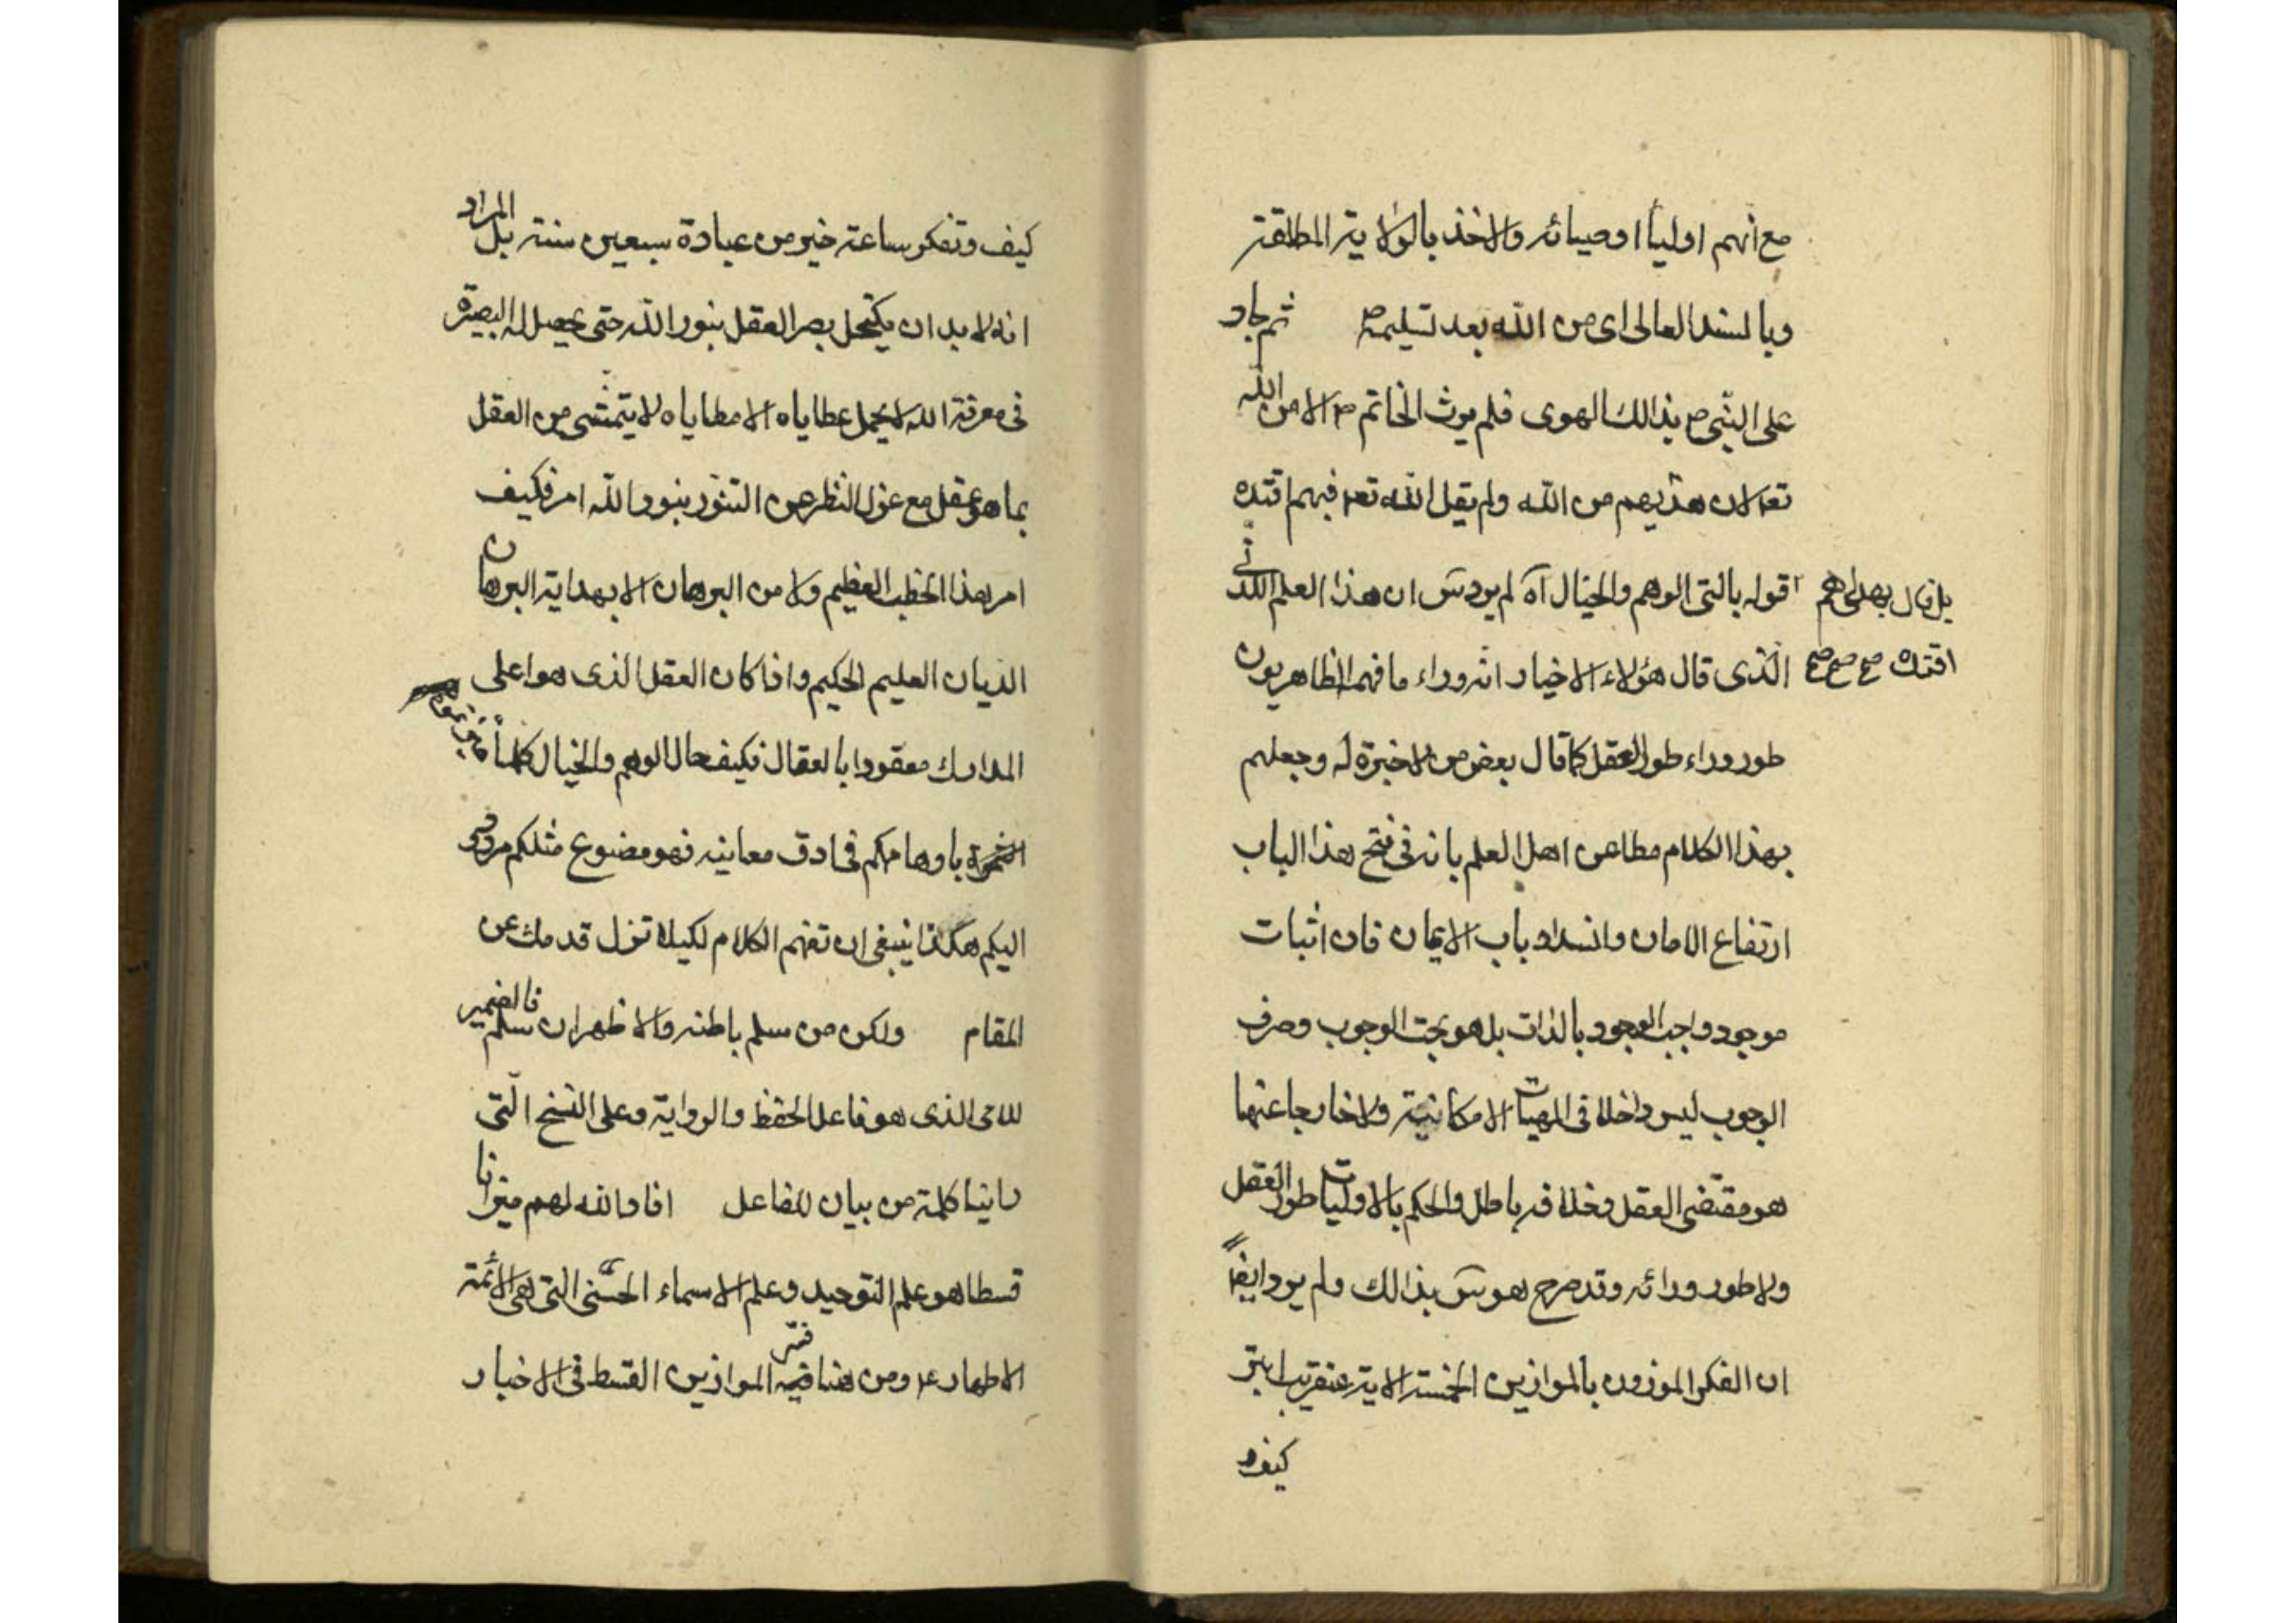 مع انهم اوليا اوصيائه والاخذ بالولاية المطلقة
وبالسند العالى اى من الله بعد تسليمه ثم جاد
على النبى ص بذالك الهوى فلم يرث الخاتم ص الا من الله
تعا لان هذيهم من الله ولم يقل الله تعا فبهم اقتده
بل قال بهديهم
اقتده صح صح صح
قوله بالتى الوهم والخيال آه لم يرد س ان هذا العلم اللدنى
الذى قال هؤلاء الاخيار انه وراء ما فهم الظاهريون
طور وراء طور العقل كما قال بعض من لا خبرة له وجعلهم
بهذا الكلام مطاعن اهل العلم بانه فى فتح هذا الباب
ارتفاع الامان وانسداد باب الايمان فان اثبات
موجود واجب الوجود بالذات بل هو بحت الوجوب وصرف
الوجوب ليس داخلا فى المهيات الامكانية ولا خارجا عنها
هو مقتضى العقل وخلافه باطل والحكم بالاوليات طور العقل
ولا طور ورائه وقد صرح هو س بذالك ولم يرد ايضا
ان الفكر الموزون بالموازين الخمسة الاتية عنقريب ابتر
كيف و
كيف وتفكر ساعة خير من عبادة سبعين سنة بل المراد
انه لابد ان يكتحل بصر العقل بنور الله حتى يحصل له البصيرة
فى معرفة الله لا يحمل عطاياه الا مطاياه لا يتمشى من العقل
بما هو عقل مع عزل النظر عن التنور بنور الله امر فكيف
امر هذا الخطب العظيم ولا من البرهان الا بهداية البرهان
الديان العليم الحكيم واذا كان العقل الذى هو اعلى
المدارك معقودا بالعقال فكيف حال الوهم والخيال كلما
باوهامكم فى ادق معانيه فهو مصنوع مثلكم مردود
اليكم هكذا ينبغى ان تفهم الكلام لكيلا تزل قدمك عن
المقام ولكن من سلم باطنه والاظهر ان سلم فالضمير
للامى الذى هو فاعل الحفظ والرواية وعلى النسخ التى
راينا كلمة من بيان للفاعل افاد الله لهم ميزانا
قسطا هو علم التوحيد وعلم الاسماء الحسنى التى هى الائمة
الاطهار ع ومن هنا فسر الموازين القسط فى الاخبار